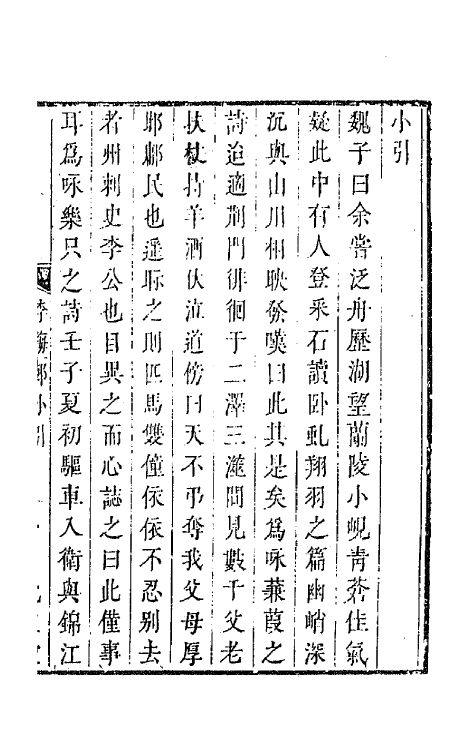 小引
魏子曰余嘗泛舟歷湖望蘭陵小峴青蒼佳氣
疑此中有人登采石讀卧虬翔羽之篇幽峭深
沉與山川相映發嘆曰此其是矣爲咏蒹葭之
詩迨適荆門徘徊于二澤三澨間見數千父老
扶杖持羊酒伏泣道傍曰天不弔奪我父母厚
耶鄰民也遥眎之則匹馬雙僮依依不忍别去
者州刺史李公也目異之而心誌之曰此僅事
耳爲咏樂只之詩壬子夏初驅車入衛與錦江
小引